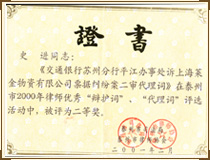 證書
史 进同志：
《交通银行苏州分行平江办事处诉上海莱
金物资有限公司票据纠纷案二审代理词》在泰州
市2000年律师优秀“辩护词”、“代理词”评选
活动中，被评为二等奖。
二00一年二月